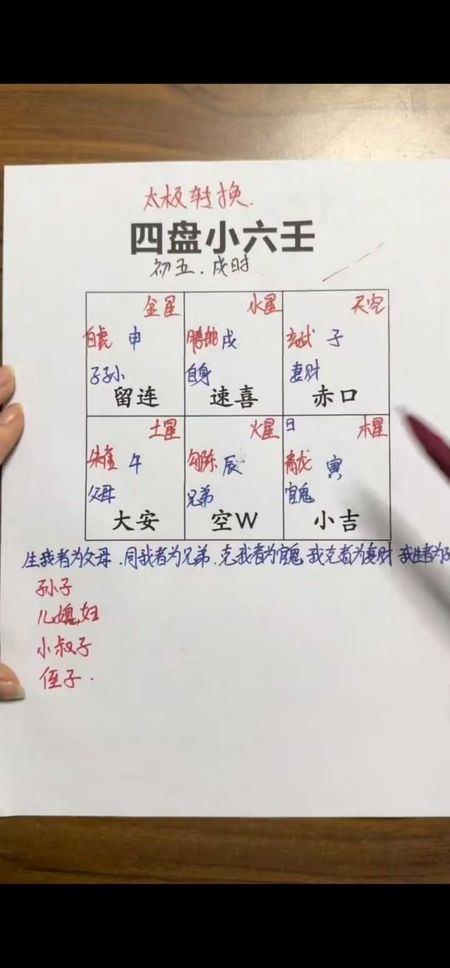 太极转换.
四盘小六壬
初五.戌时
金星 水星 天空
白虎 申 腾蛇 戌 玄武 子
子孙 自身 妻财
留连 速喜 赤口
土星 火星 日 木星
朱雀 午 勾陈 辰 青龙 寅
父母 兄弟 官鬼
大安 空W 小吉
生我者为父母.同我者为兄弟.克我者为官鬼.我克者为妻财 我生者为
孙子
儿媳妇
小叔子
侄子.